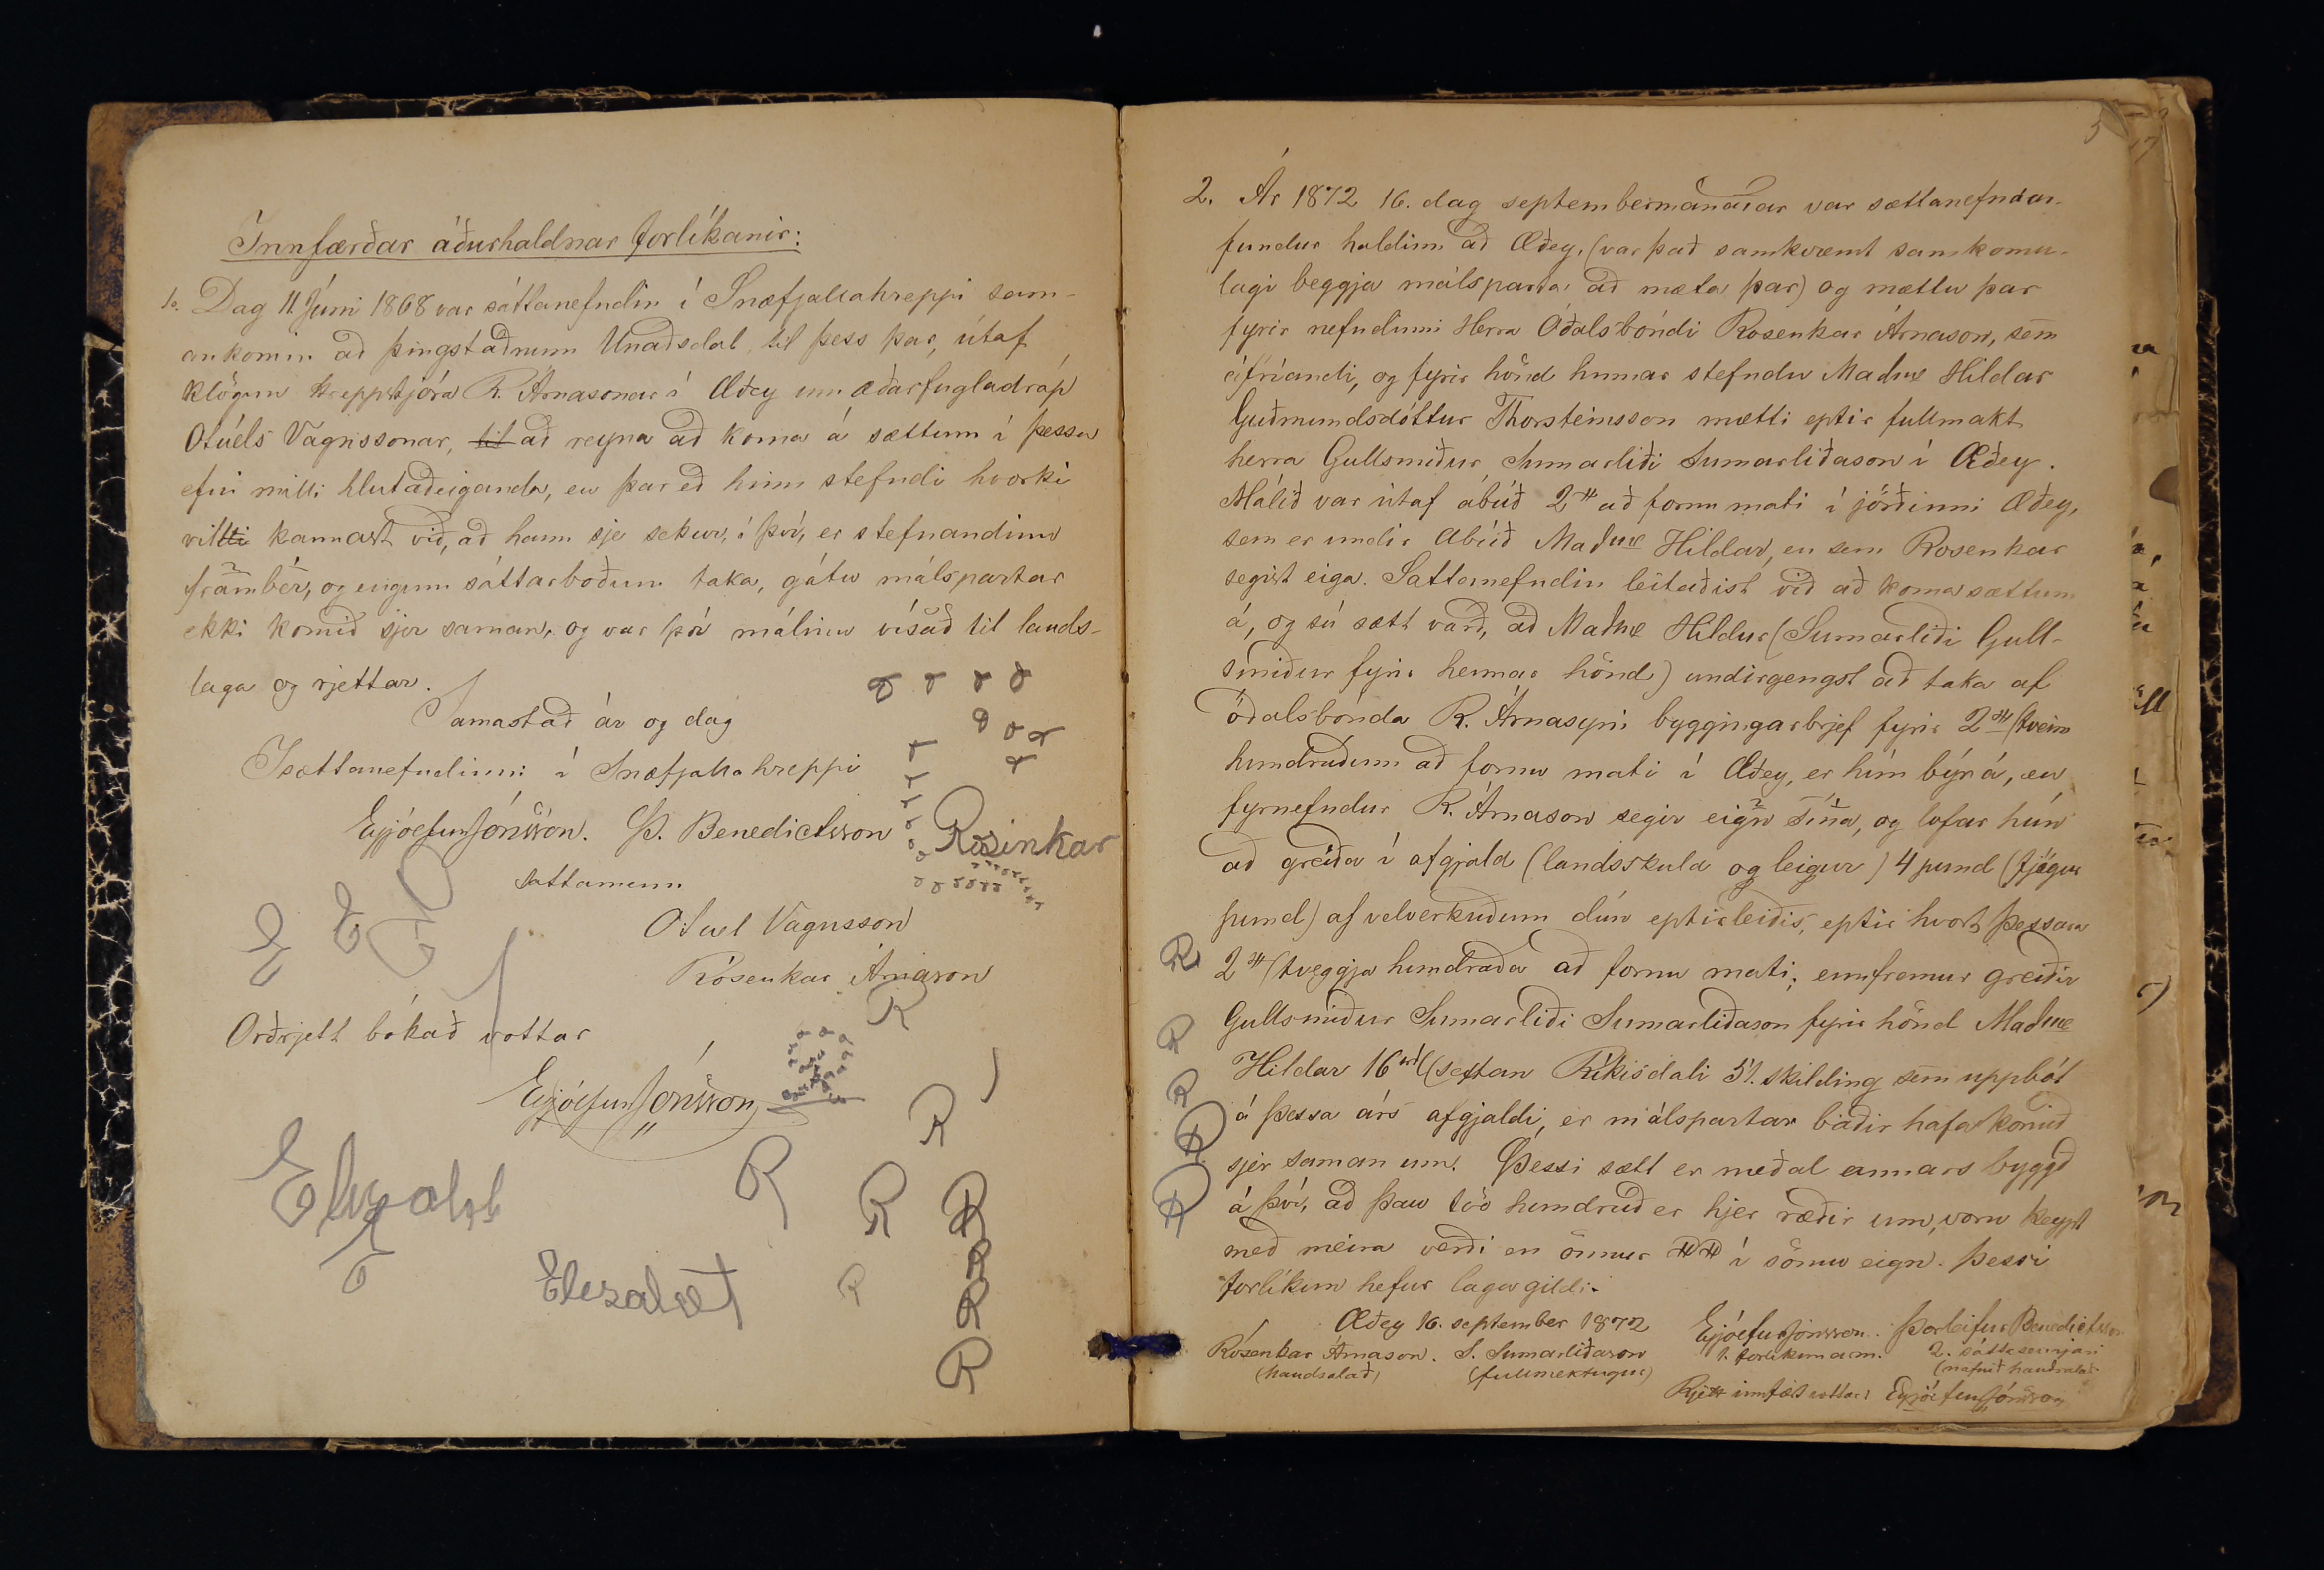 Innfærðar áðurhaldnar forlíkanir:
1o. Dag 11. Júni 1868 var sáttanefndin í Snæfjallahreppi sam-
ankomin að þingstaðnum Unaðsdal, til þess þar, útaf
klögun Hreppstjóra R. Árnasonar í Æðey um æðarfugladráp
Otúels Vagnssonar, til að reyna að koma á sættum í þessu
efni milli hlutaðeiganda, en þar eð hinn stefndi hvorki
villti kannast við, að hann sje sekur, í því, er stefnandinn
frambér, og eingum sáttarboðum taka, gátu málspartar
ekki komið sjer saman, og var því málinu vísað til lands-
laga og rjettar.
Samastað ár og dag
Í sættanefndinni í Snæfjallahreppi
Eyjóefur Jónsson. Þ. Benedictsson
Rosinkar
sáttamenn
Otuel Vagnsson
Rósenkar Árnason
R
E E E
Orðrjett bókað vottar
Eyjóefur Jónsson
R
E
R R R
R
Elesabet
R R
R
5
17
2. Ár 1872 16. dag septembermánaðar var sættanefndar-
fundur haldinn að Æðey, (var það samkvæmt samkomu-
lagi beggja málsparta að mæta þar) og mættu þar
fyrir nefndinni Herra Óðalsbóndi Rosenkar Árnason, sem
áfríandi, og fyrir hönd hinnar stefndu Madme Hildar
Guðmundsdóttur Thorsteinsson mætti eptir fullmakt
herra Gullsmiður Sumarliði Sumarliðason í Æðey.
Málið var útaf ábúð 2H að fornu mati í jörðinni Æðey,
sem er undir ábúð Madme Hildar, en sem Rosenkar
segist eiga. Sattanefndin leitaðist við að koma sættum
á, og sú sætt varð, að Madme Hildur (Sumarliði Gull-
smiður fyrir hennar hönd) undirgengst að taka af
óðalsbónda R. Árnasyni byggingarbrjef fyrir 2H (tveim
hundruðum að fornu mati í Æðey, er hún býr á, en
fyrnefndur R. Árnason segir eign sína, og lofar hún
að greiða í afgjald (landsskuld og leigur) 4 pund (fjögur
pund) af velverkuðum dún eptirleiðis, eptir hvort þessara
R 2H (tveggja hundraða að fornu mati; ennfremur greiðir
R Gullsmiður Sumarliði Sumarliðason fyrir hönd Madme
R Hildar 16rd (sextan Ríkisdali 51. skilding sem uppbót
R á þessa árs afgjaldi, er málspartar báðir hafa komið
R sjer saman um. Þessi sætt er meðal annars byggð
á því, að þau tvö hundruð er hjer ræðir um, voru keypt
með meira verði en önnur HH í sömu eign. Þessi
forlíkun hefur laga gildi.
Æðey 16. september 1872
Rósenkar Árnason. S. Sumarliðason
(handsalað) (fullmektugur)
Eyjóefur Jónsson. Þorleifur Benedictsson
1. forlíkunarm. 2. sáttasemjari
(nafnið handsalað
Rjett innfært vottar: Eyjóefur Jónsson